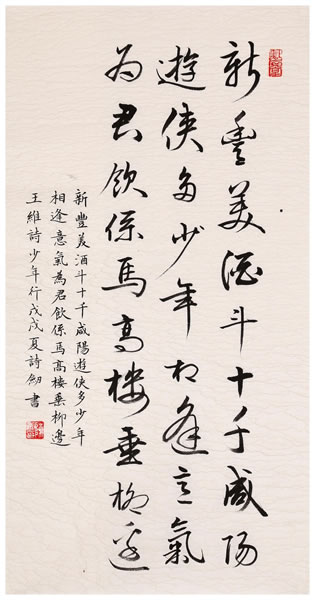 新豐美酒斗十千咸陽
遊俠多少年相逢意氣
為君飲係馬高樓垂柳邊
新豐美酒斗十千咸陽遊俠多少年
相逢意氣為君飲係馬高樓垂柳邊
王維詩少年行戊戌夏詩書